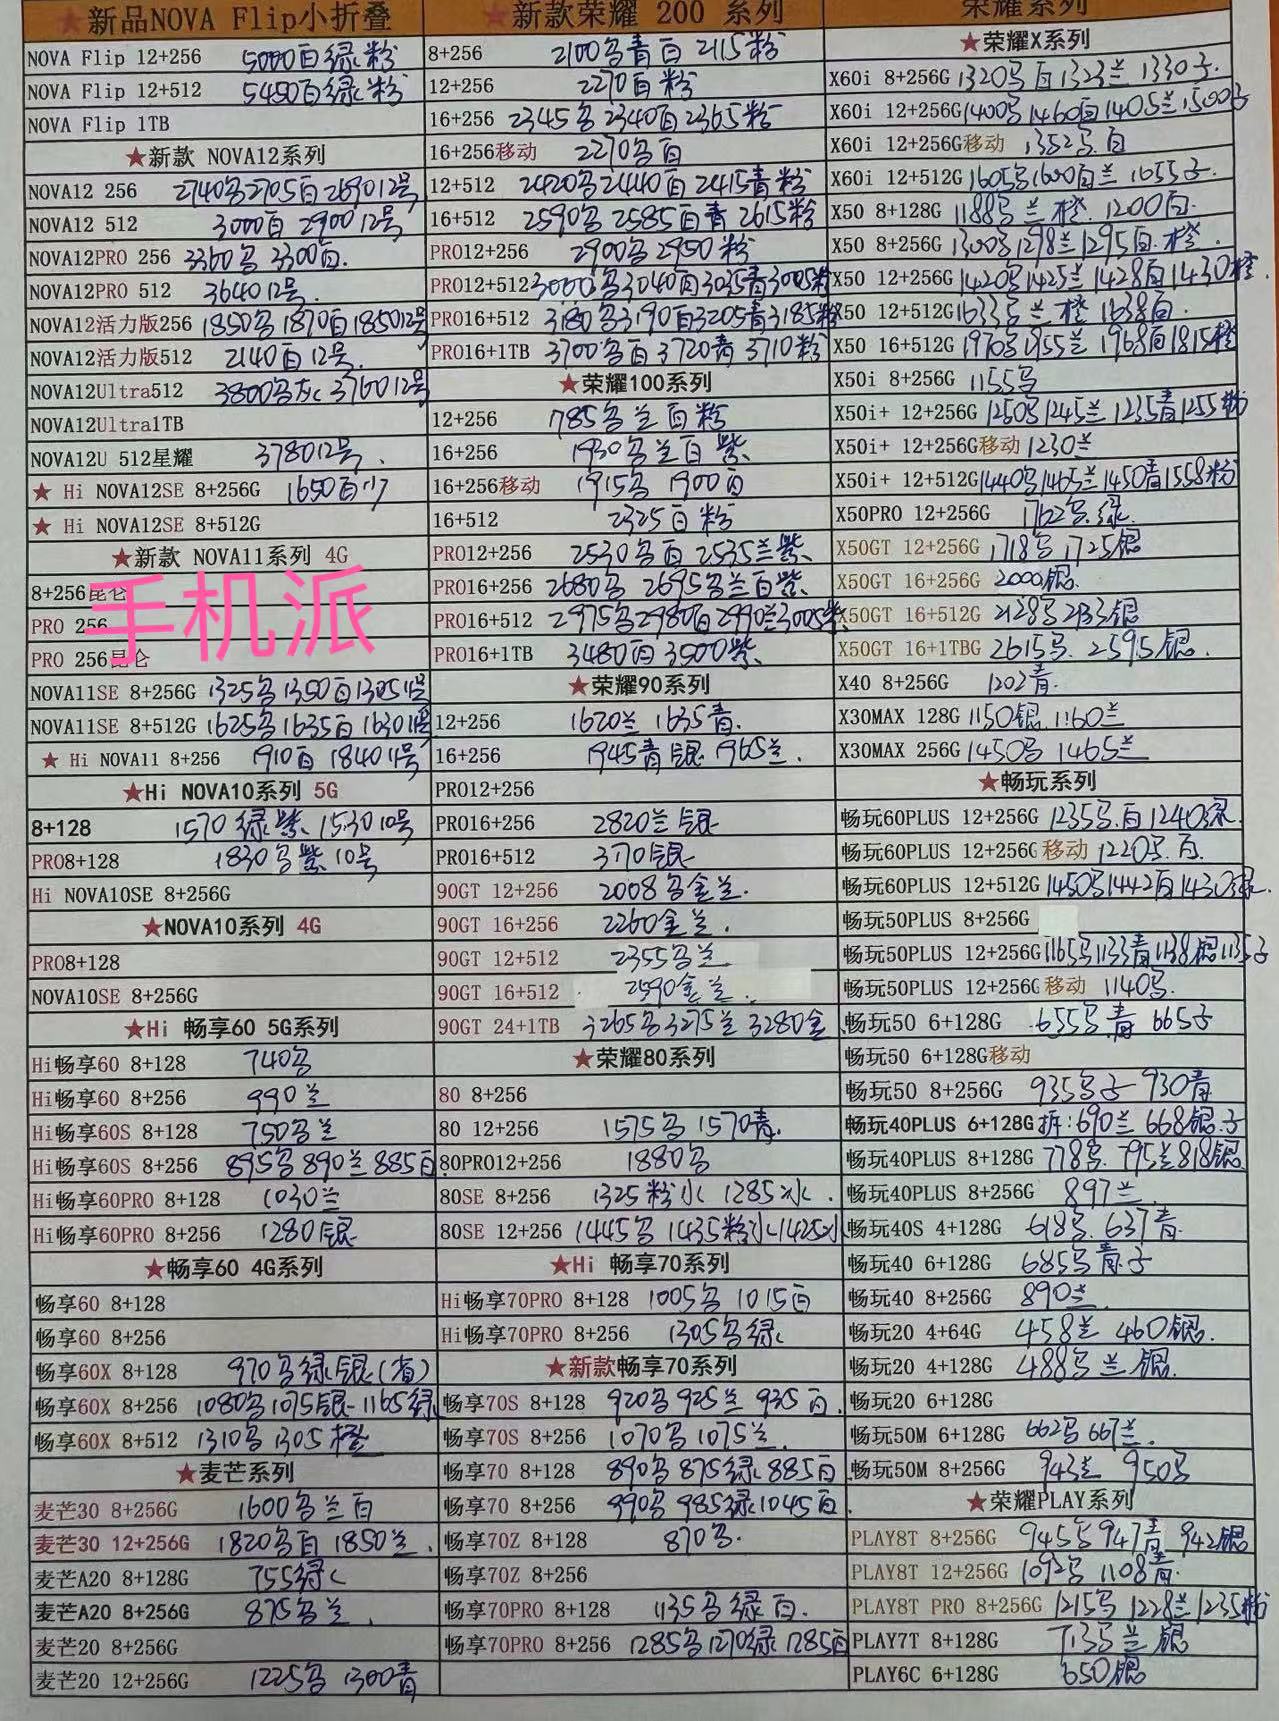 ★新品NOVA Flip小折叠
NOVA Flip 12+256 5000白绿粉
NOVA Flip 12+512 5450白绿粉
NOVA Flip 1TB
★新款 NOVA12系列
NOVA12 256 2740 2705白 2690 12号
NOVA12 512 3000白 2900 12号
NOVA12PRO 256 3360 3300白.
NOVA12PRO 512 3640 12号.
NOVA12活力版256 1850 1870白 1850 12号
NOVA12活力版512 2140白 12号.
NOVA12Ultra512 3800 灰 3760 12号
NOVA12Ultra1TB
NOVA12U 512星耀 3780 12号.
★ Hi NOVA12SE 8+256G 1650白
★ Hi NOVA12SE 8+512G
★新款 NOVA11系列 4G
8+256昆仑
手机派
PRO 256
PRO 256昆仑
NOVA11SE 8+256G 1325 1350白 1305 11号
NOVA11SE 8+512G 1625 1635白 1630 11号
★ Hi NOVA11 8+256 1910白 1840 11号
★Hi NOVA10系列 5G
8+128 1570 绿紫. 1530 10号
PRO8+128 1830 紫. 10号
Hi NOVA10SE 8+256G
★NOVA10系列 4G
PRO8+128
NOVA10SE 8+256G
★Hi 畅享60 5G系列
Hi畅享60 8+128 740
Hi畅享60 8+256 990兰
Hi畅享60S 8+128 750 兰
Hi畅享60S 8+256 895 890兰 885白
Hi畅享60PRO 8+128 1030兰
Hi畅享60PRO 8+256 1280银
★畅享60 4G系列
畅享60 8+128
畅享60 8+256
畅享60X 8+128 970 绿银(省)
畅享60X 8+256 1080 1075银 1165绿
畅享60X 8+512 1310 1305橙
★麦芒系列
麦芒30 8+256G 1600 兰白
麦芒30 12+256G 1820 白 1850兰.
麦芒A20 8+128G 755绿
麦芒A20 8+256G 875 兰.
麦芒20 8+256G
麦芒20 12+256G 1225 1300青
★新款荣耀 200 系列
8+256 2100 青白 2115粉
12+256 2270白粉
16+256 2345 2340白 2365粉
16+256移动 2270 白
12+512 2420 2440白 2415青粉
16+512 2590 2585白青 2615粉
PRO12+256 2900 2950粉
PRO12+512 3000 3040白 3035青 3005粉
PRO16+512 3180 3190白 3205青 3185粉
PRO16+1TB 3700 白 3720青 3710粉
★荣耀100系列
12+256 785 兰白粉
16+256 1930 兰白紫.
16+256移动 1915 1900白
16+512 2325白粉
PRO12+256 2530 白 2535兰紫.
PRO16+256 2680 2695 兰白紫.
PRO16+512 2975 2980白 2990兰 3005紫
PRO16+1TB 3480白 3500紫.
★荣耀90系列
12+256 1620兰 1635青.
16+256 1945青银 1965兰.
PRO12+256
PRO16+256 2820兰银
PRO16+512 370银
90GT 12+256 2008 金兰.
90GT 16+256 2260金兰.
90GT 12+512 2355 兰
90GT 16+512 2590金兰.
90GT 24+1TB 3265 3275兰 3280金
★荣耀80系列
80 8+256
80 12+256 1575 1570青.
80PRO12+256 1880
80SE 8+256 1325粉水 1285冰.
80SE 12+256 1445 1435粉 1425冰
★Hi 畅享70系列
Hi畅享70PRO 8+128 1005 1015白
Hi畅享70PRO 8+256 1305 绿
★新款畅享70系列
畅享70S 8+128 920 925兰 935白.
畅享70S 8+256 1070 1075兰.
畅享70 8+128 890 875绿 885白
畅享70 8+256 990 985绿 1045白.
畅享70Z 8+128 870
畅享70Z 8+256
畅享70PRO 8+128 1135 绿白.
畅享70PRO 8+256 1285 1270绿 1285白
荣耀系列
★荣耀X系列
X60i 8+256G 1320 白 1323兰 1330
X60i 12+256G 1400 1460白 1405兰 1500
X60i 12+256G移动 1352 白
X60i 12+512G 1605 1600白兰 1655
X50 8+128G 1188 兰橙. 1200白.
X50 8+256G 1300 1298兰 1295白.橙.
X50 12+256G 1420 1425兰 1428白 1430橙.
X50 12+512G 1633 兰橙 1638白.
X50 16+512G 1970 1955兰 1968白 1815橙
X50i 8+256G 1155
X50i+ 12+256G 1250 1245兰 1235青 1255粉
X50i+ 12+256G移动 1230兰
X50i+ 12+512G 1440 1465兰 1450青 1558粉
X50PRO 12+256G 1762 绿.
X50GT 12+256G 1718 1725银
X50GT 16+256G 2000银.
X50GT 16+512G 2128 2133银
X50GT 16+1TBG 2615 2595银.
X40 8+256G 1202青.
X30MAX 128G 1150银 1160兰
X30MAX 256G 1450 1465兰
★畅玩系列
畅玩60PLUS 12+256G 1235 .白 1240绿.
畅玩60PLUS 12+256G 移动 1220 .白.
畅玩60PLUS 12+512G 1450 1442白 1430绿.
畅玩50PLUS 8+256G
畅玩50PLUS 12+256G 1165 1133青 1138银 1135
畅玩50PLUS 12+256G 移动 1140
畅玩50 6+128G 655 .青 665
畅玩50 6+128G移动
畅玩50 8+256G 935 930青
畅玩40PLUS 6+128G 拆:690兰 668银.
畅玩40PLUS 8+128G 778 795兰 818银
畅玩40PLUS 8+256G 897兰.
畅玩40S 4+128G 618 637青.
畅玩40 6+128G 685 青.
畅玩40 8+256G 890兰.
畅玩20 4+64G 458兰 460银.
畅玩20 4+128G 488 兰银.
畅玩20 6+128G
畅玩50M 6+128G 662 667兰.
畅玩50M 8+256G 943兰 950
★荣耀PLAY系列
PLAY8T 8+256G 945 947青 942银
PLAY8T 12+256G 1092 1108青.
PLAY8T PRO 8+256G 1215 1228兰 1235粉
PLAY7T 8+128G 735兰银
PLAY6C 6+128G 650银